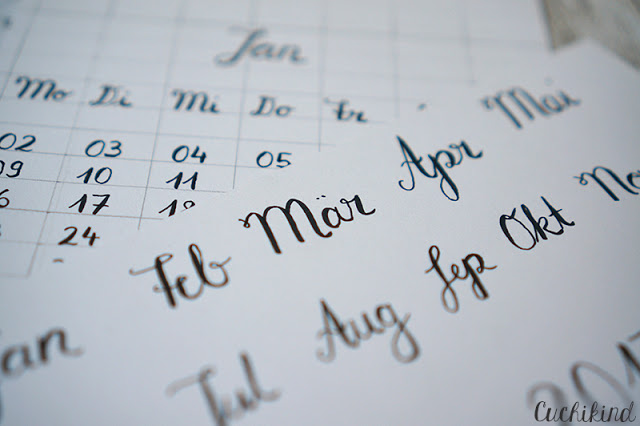 Jan
Mo Di Mi Do Fr
02 03 04 05
09 10 11
17
24
Mai
Apr
Mär
Feb
Jan
Nov
Okt
Sep
Aug
Jul
2017
Cuchikind